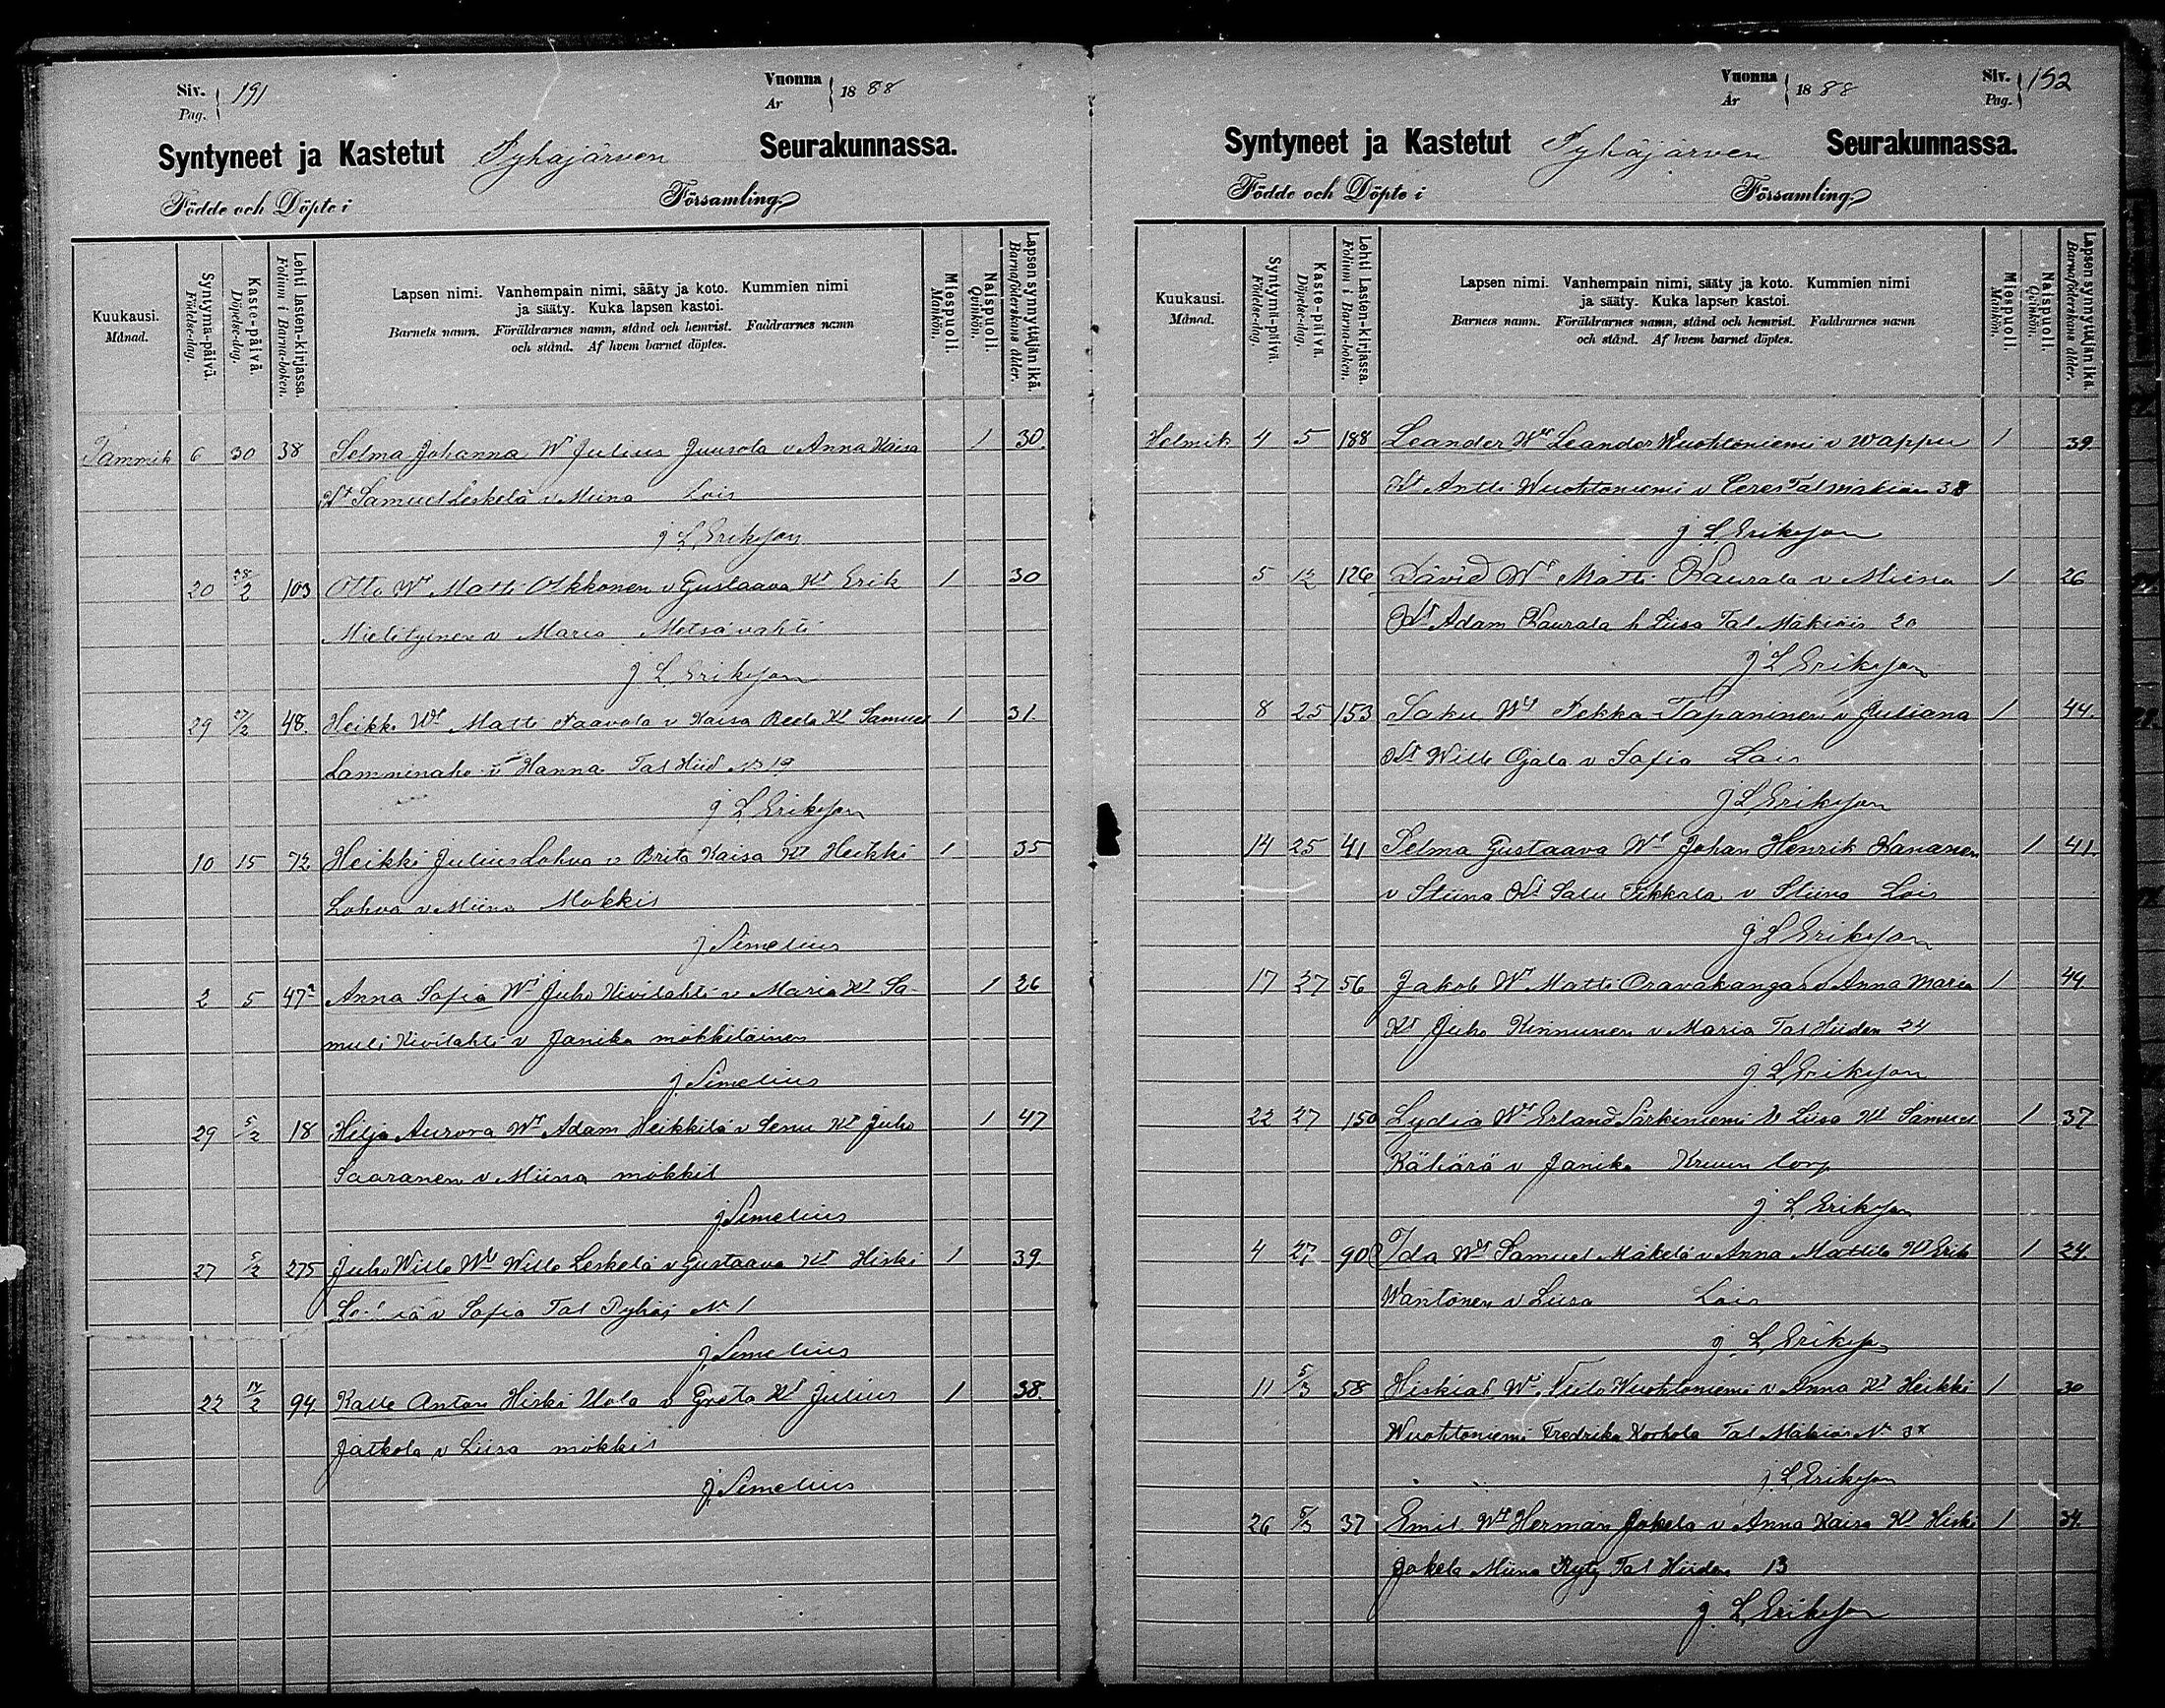 Siv. Pag. 191
Vuonna År 1888
Syntyneet ja Kastetut Pyhäjärven Seurakunnassa.
Födde och Döpte i Församling.
Kuukausi. Månad.
Syntymä-päivä. Födelse-dag.
Kaste-päivä. Döpelse-dag.
Lehti lasten-kirjassa. Folium i Barna-boken.
Lapsen nimi. Vanhempain nimi, sääty ja koto. Kummien nimi
ja sääty. Kuka lapsen kastoi.
Barnets namn. Föräldrarnes namn, stånd och hemvist. Faddrarnes namn
och stånd. Af hvem barnet döptes.
Miespuoli. Mankön.
Naispuoli. Qvinkön.
Lapsen synnyttäjän ikä. Barnaföderskans ålder.
Tammik 6 30 38 Selma Johanna Wt Julius Juusola v Anna Kaisa 1 30.
Kt Samuel Leskelä v Miina Lois
J L Erikson
20 28/2 103 Otto Wt Matti Olkkonen v Gustaava Kt Erik 1 30
Mielitynen v Maria Metsävahti
J L Erikson
29 27/2 48. Heikki Wt Matti Paavola v Kaisa Reeta Kt Samuel 1 31.
Lamminaho v Hanna Tal Hiid No 19
J L Erikson
10 15 72 Heikki Julius Lohva v Brita Kaisa Kt Heikki 1 35
Lohva v Miina Mökkil
J Simelius
2 5 47 Anna Sofia Wt Juho Kivilahti v Maria Kt Sa-
muli Kivilahti v Janika mökkiläinen 1 26
J Simelius
29 5/2 18 Hilja Aurora Wt Adam Heikkilä v Senu Kt Juho 1 47
Saaranen v Miina mökkil
J Simelius
27 5/2 275 Juho Wille Wt Wille Leskelä v Gustaava Kt Hiski 1 39.
v Sofia Tal Pyhäj No 1
J Simelius
22 14/2 94. Kalle Anton Hiski Uola v Greta Kt Julius 1 38.
Jatkola v Liisa mökkil
J Simelius
Vuonna År 1888
Siv. Pag. 192
Syntyneet ja Kastetut Pyhäjärven Seurakunnassa.
Födde och Döpte i Församling.
Kuukausi. Månad.
Syntymä-päivä. Födelse-dag.
Kaste-päivä. Döpelse-dag.
Lehti Lasten-kirjassa. Folium i Barna-boken.
Lapsen nimi. Vanhempain nimi, sääty ja koto. Kummien nimi
ja sääty. Kuka lapsen kastoi.
Barnets namn. Föräldrarnes namn, stånd och hemvist. Faddrarnes namn
och stånd. Af hvem barnet döptes.
Miespuoli. Mankön.
Naispuoli. Qvinkön.
Lapsen synnyttäjän ikä. Barnaföderskans ålder.
Helmik 4 5 188 Leander Wt Leander Wuohtoniemi v Wappu 1 39.
Kt Antti Wuohtoniemi v Ceres Tal Mäkiöis 38
J L Erikson
5 12 126 David Wt Matti Kaurala v Miina 1 26
Kt Adam Kaurala h Liisa Tal Mäkiöis 20
J L Erikson
8 25 153 Saku Wt Pekka Tapaninen v Juliana 1 44.
Kt Wille Ojala v Sofia Lois
J L Erikson
14 25 41 Selma Gustaava Wt Johan Henrik Kananen 1 41.
v Stiina Kt Salu Tikkala v Stiina Lois
J L Erikson
17 27 56 Jakob Wt Matti Oravakangas v Anna Maria 1 44
Kt Juho Kinnunen v Maria Tal Hiiden 24
J L Erikson
22 27 150 Lydia Wt Erland Särkiniemi v Liisa Kt Samuel 1 37
Kähärä v Janika Kruun torp
J L Erikson
4 27 90 Ida Wt Samuel Mäkelä v Anna Matilda Kt Erik 1 24.
Wäntönen v Liisa Lois
J L Erikson
11 5/3 58 Hiskias Wt Niilo Wuohtoniemi v Anna Kt Heikki 1 30
Wuohtoniemi Fredrika Korhola Tal Mäkiöis No 38
J L Erikson
26 5/3 37 Emil Wt Herman Jokela v Anna Kaisa Kt Hiski 1 34.
Jokela Miina Tal Hiiden 13
J L Erikson